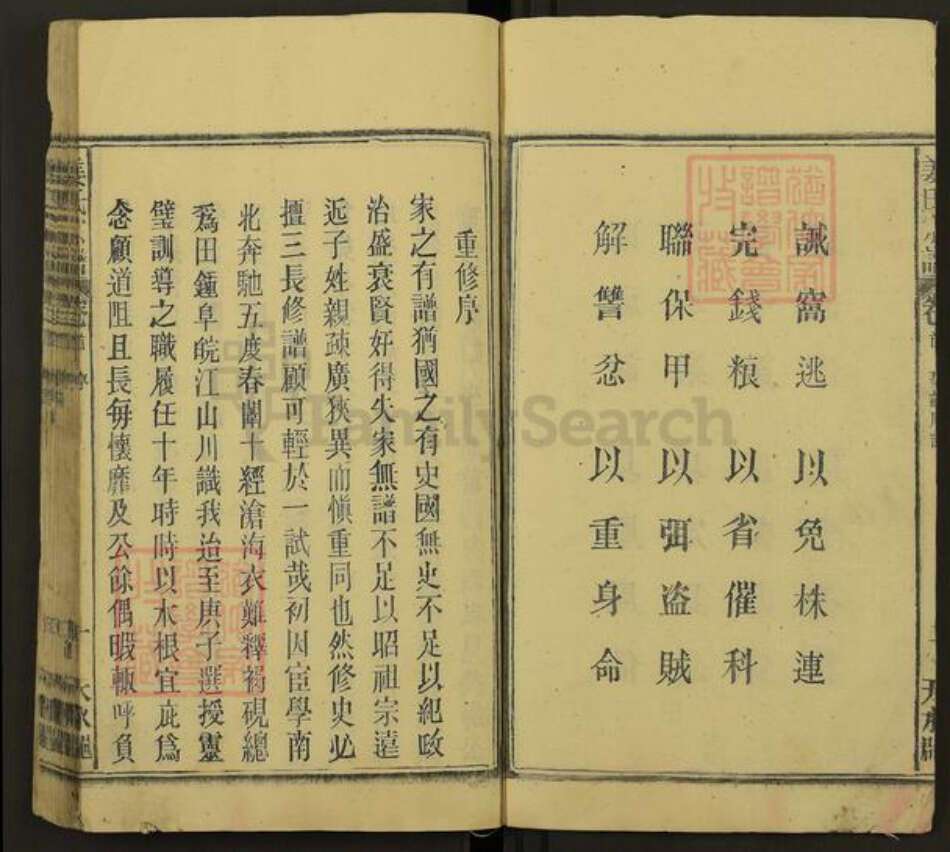 誡窩逃以免株連
完錢粮以省催科
聯保甲以弭盗賊
解讐忿以重身命
重修序
家之有譜猶國之有史國無史不足以紀政
治盛衰賢奸得失家無譜不足以昭祖宗遠
近子姓親疎廣狹異而慎重同也然修史必
擅三長修譜顧可輕於一試哉初因宦學南
北奔馳五度春闈十經滄海衣難釋褐硯總
爲田鍾阜皖江山川識我迨至庚子選授靈
璧訓導之職履任十年時時以水根宜庇爲
念顧道阻且長每懷靡及公餘偶暇輒呼負
FamilySearch